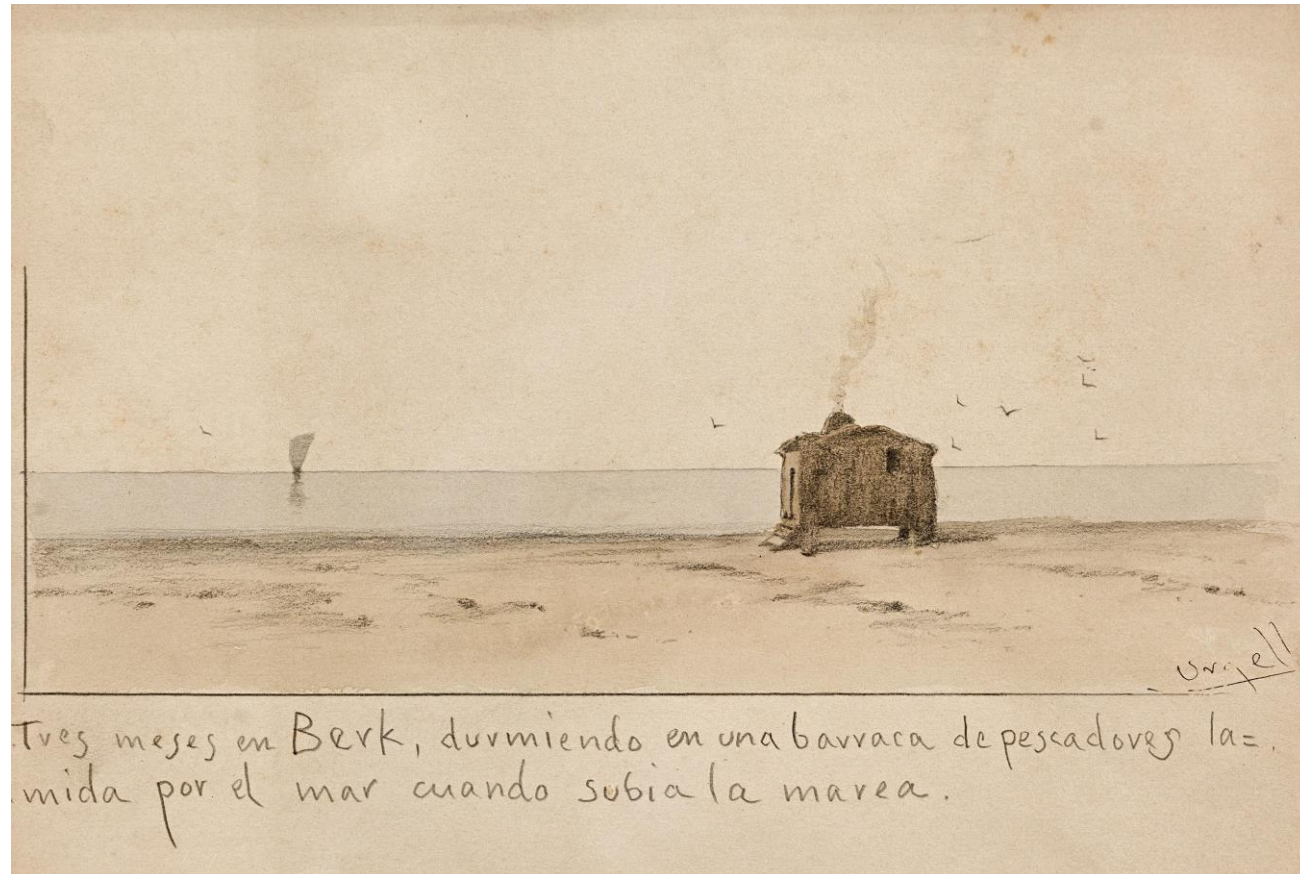 Urgell
Tres meses en Berk, durmiendo en una barraca de pescadores la=
mida por el mar cuando subia la marea.